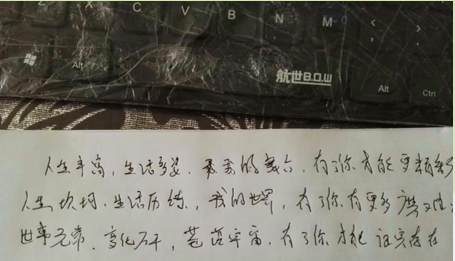 Z X C V B N M < >
Alt 航世B.O.W Alt Ctrl
人生平高，生活多姿，我的舞台，有了你才能更精彩
人生坎坷，生活历练，我的世界，有了你有更多
世事无常，变化万千，苍茫宇宙，有了你才能证实存在